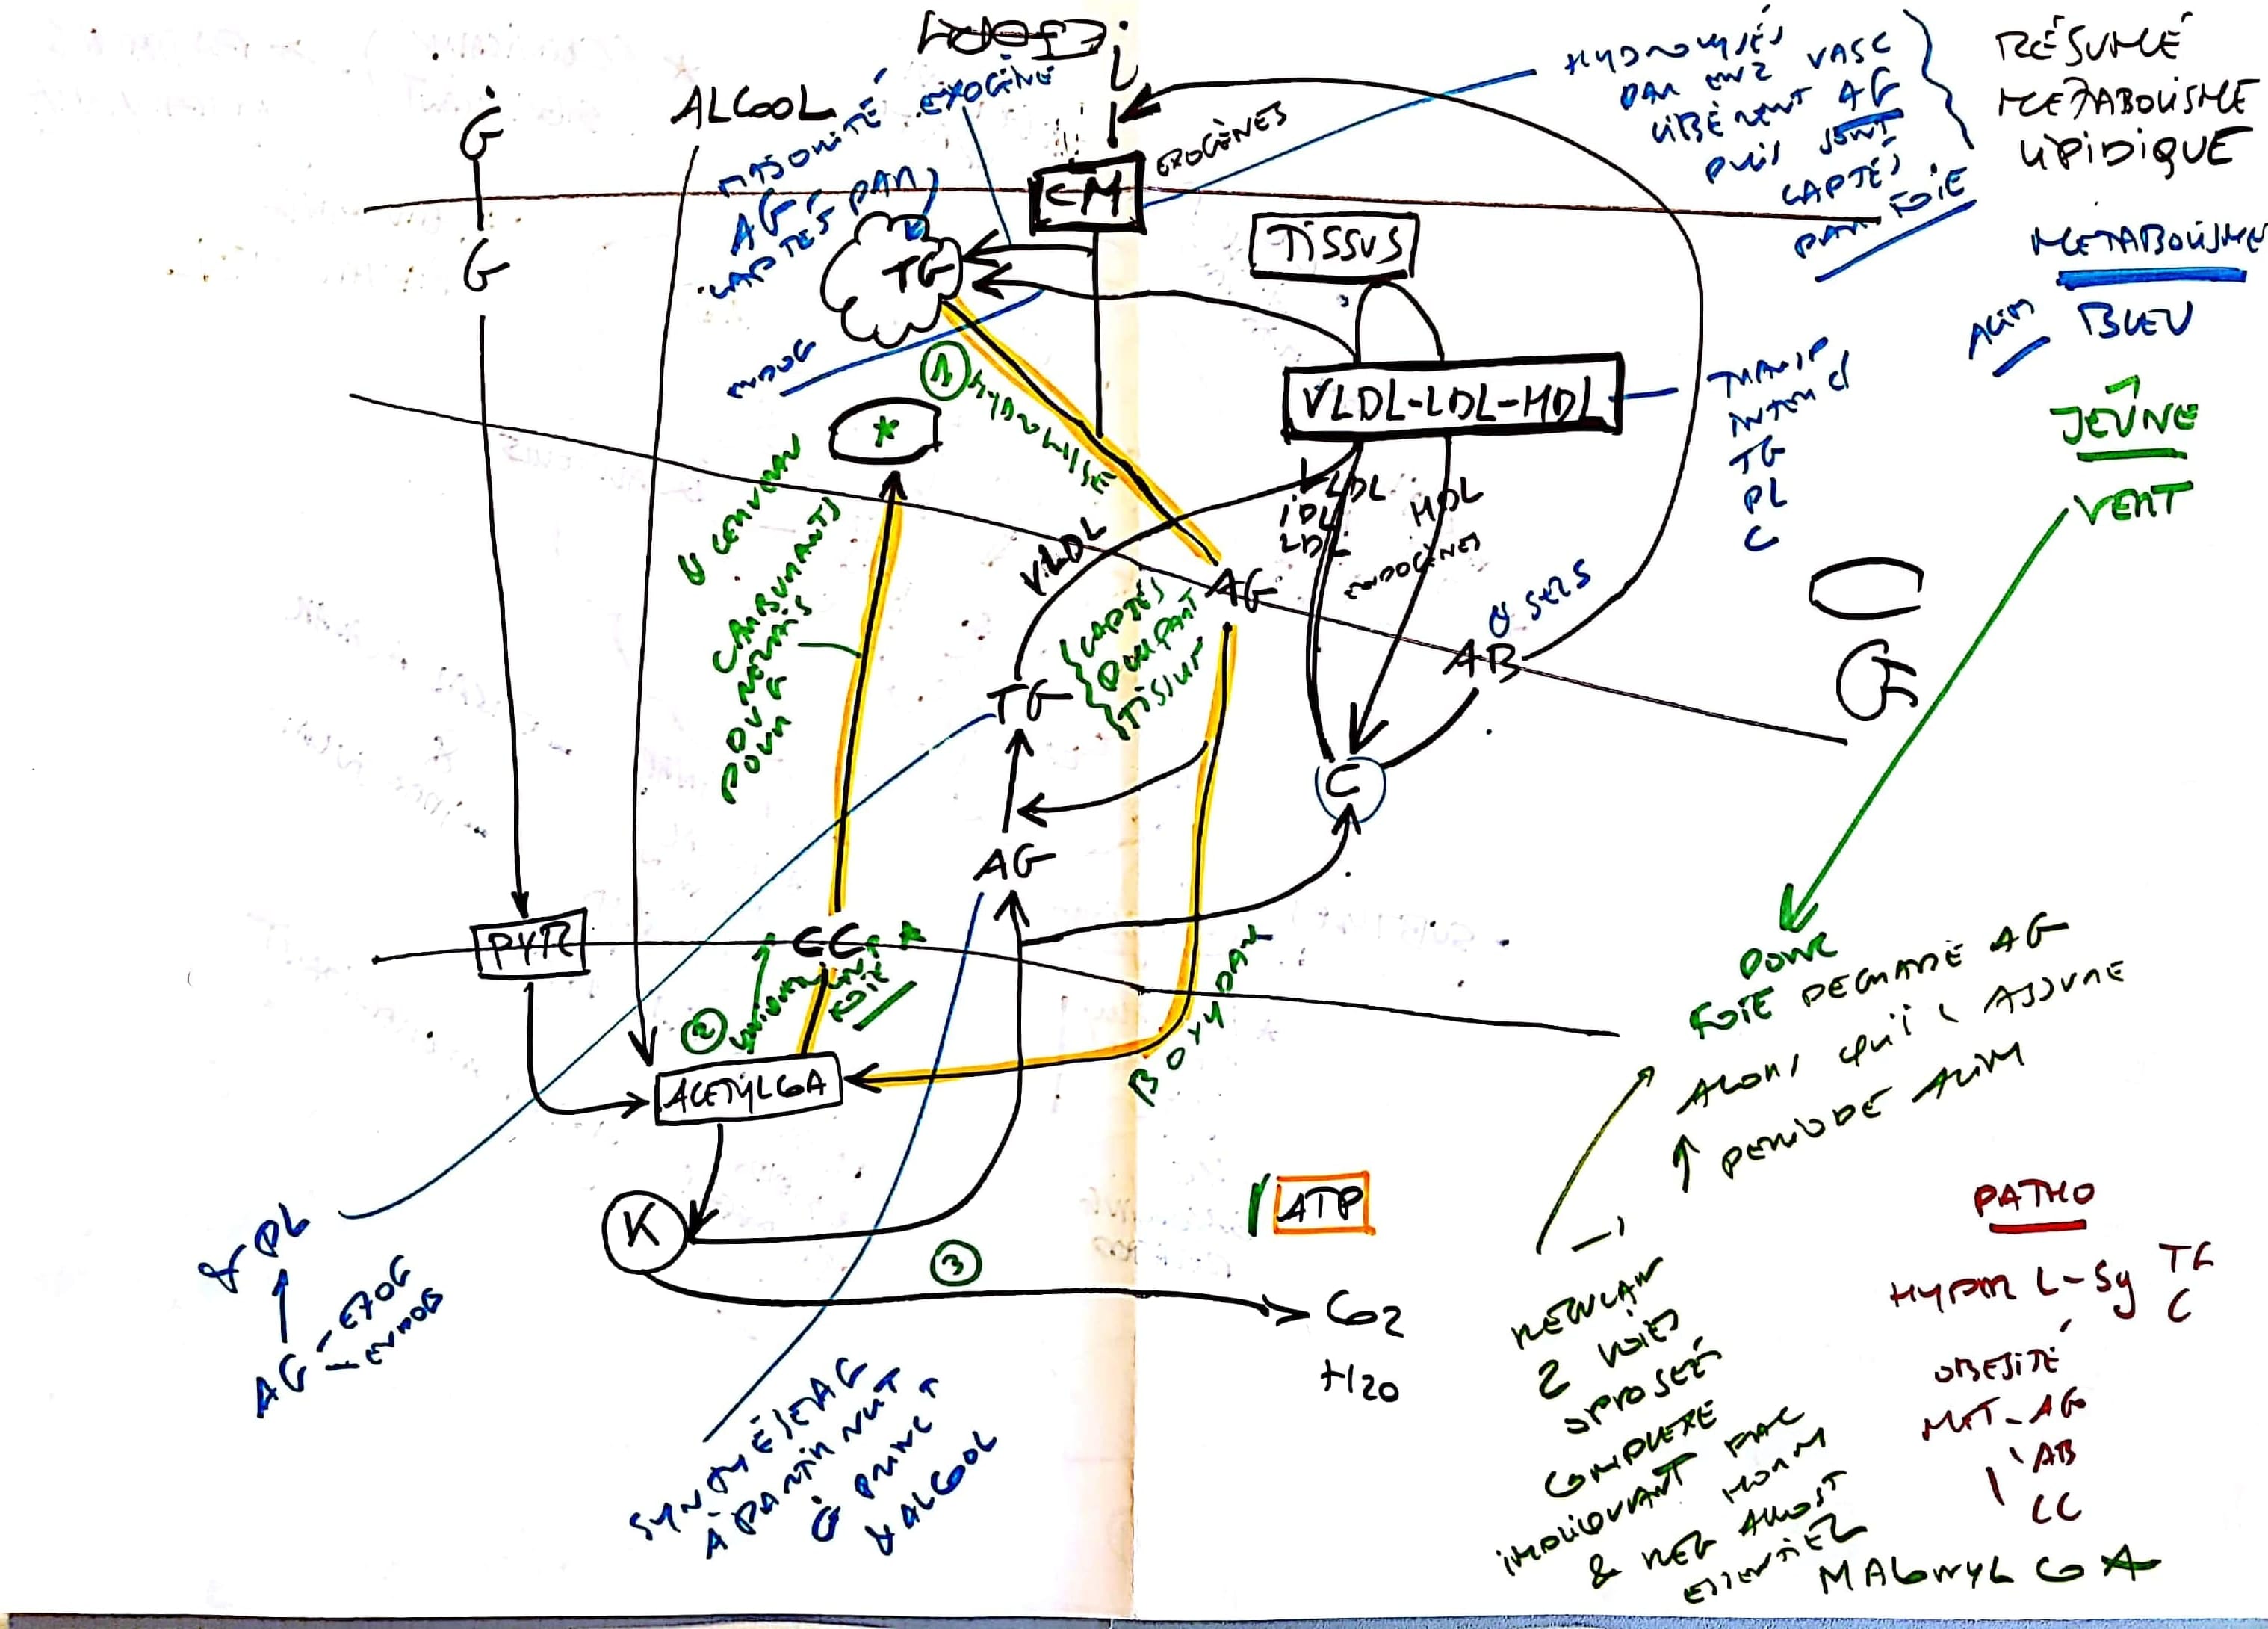 RÉSUMÉ
METABOLISME
LIPIDIQUE
METABOLISME
ALIM
BLEU
JEÛNE
VERT
HYDROLYSÉS
PAR ENZ VASC
LIBÈRENT AG
PUIS SONT
CAPTÉS
PAR FOIE
ALCOOL
G
G
MAJORITÉ EXOGÈNE
AG
CAPTÉS PAR
CM
EXOGÈNES
TG
TISSUS
ENDOG
VLDL-LDL-HDL
TRANSP
INTER
TG
PL
C
1 HYDROLYSE
*
CERVEAU
CARBURANTS
POUR
VLDL
VLDL
IDL
LDL
HDL
ENDOGÈNES
AG
CAPTÉS
TISSUS
AB
& SELS
C
TG
AG
PYR
CC *
2
UNIQUEMENT
FOIE
B OXYDAT
ACETYLCOA
K
3
ATP
CO2
H2O
& PL
AG
- EXOG
- ENDOG
SYNTHÈSE AG
À PARTIR NUT
G PRINC
& ALCOOL
DONC
FOIE DEGRADE AG
ALORS QU'IL ASSURE
PERIODE ALIM
2 VOIES
OPPOSÉES
COMPLEXE
IMPLIQUANT
HORM
& REG ALLOST
ESSENTIEL
MALONYL COA
PATHO
HYPER L-Sy TG
C
OBESITÉ
MET-AG
AB
CC